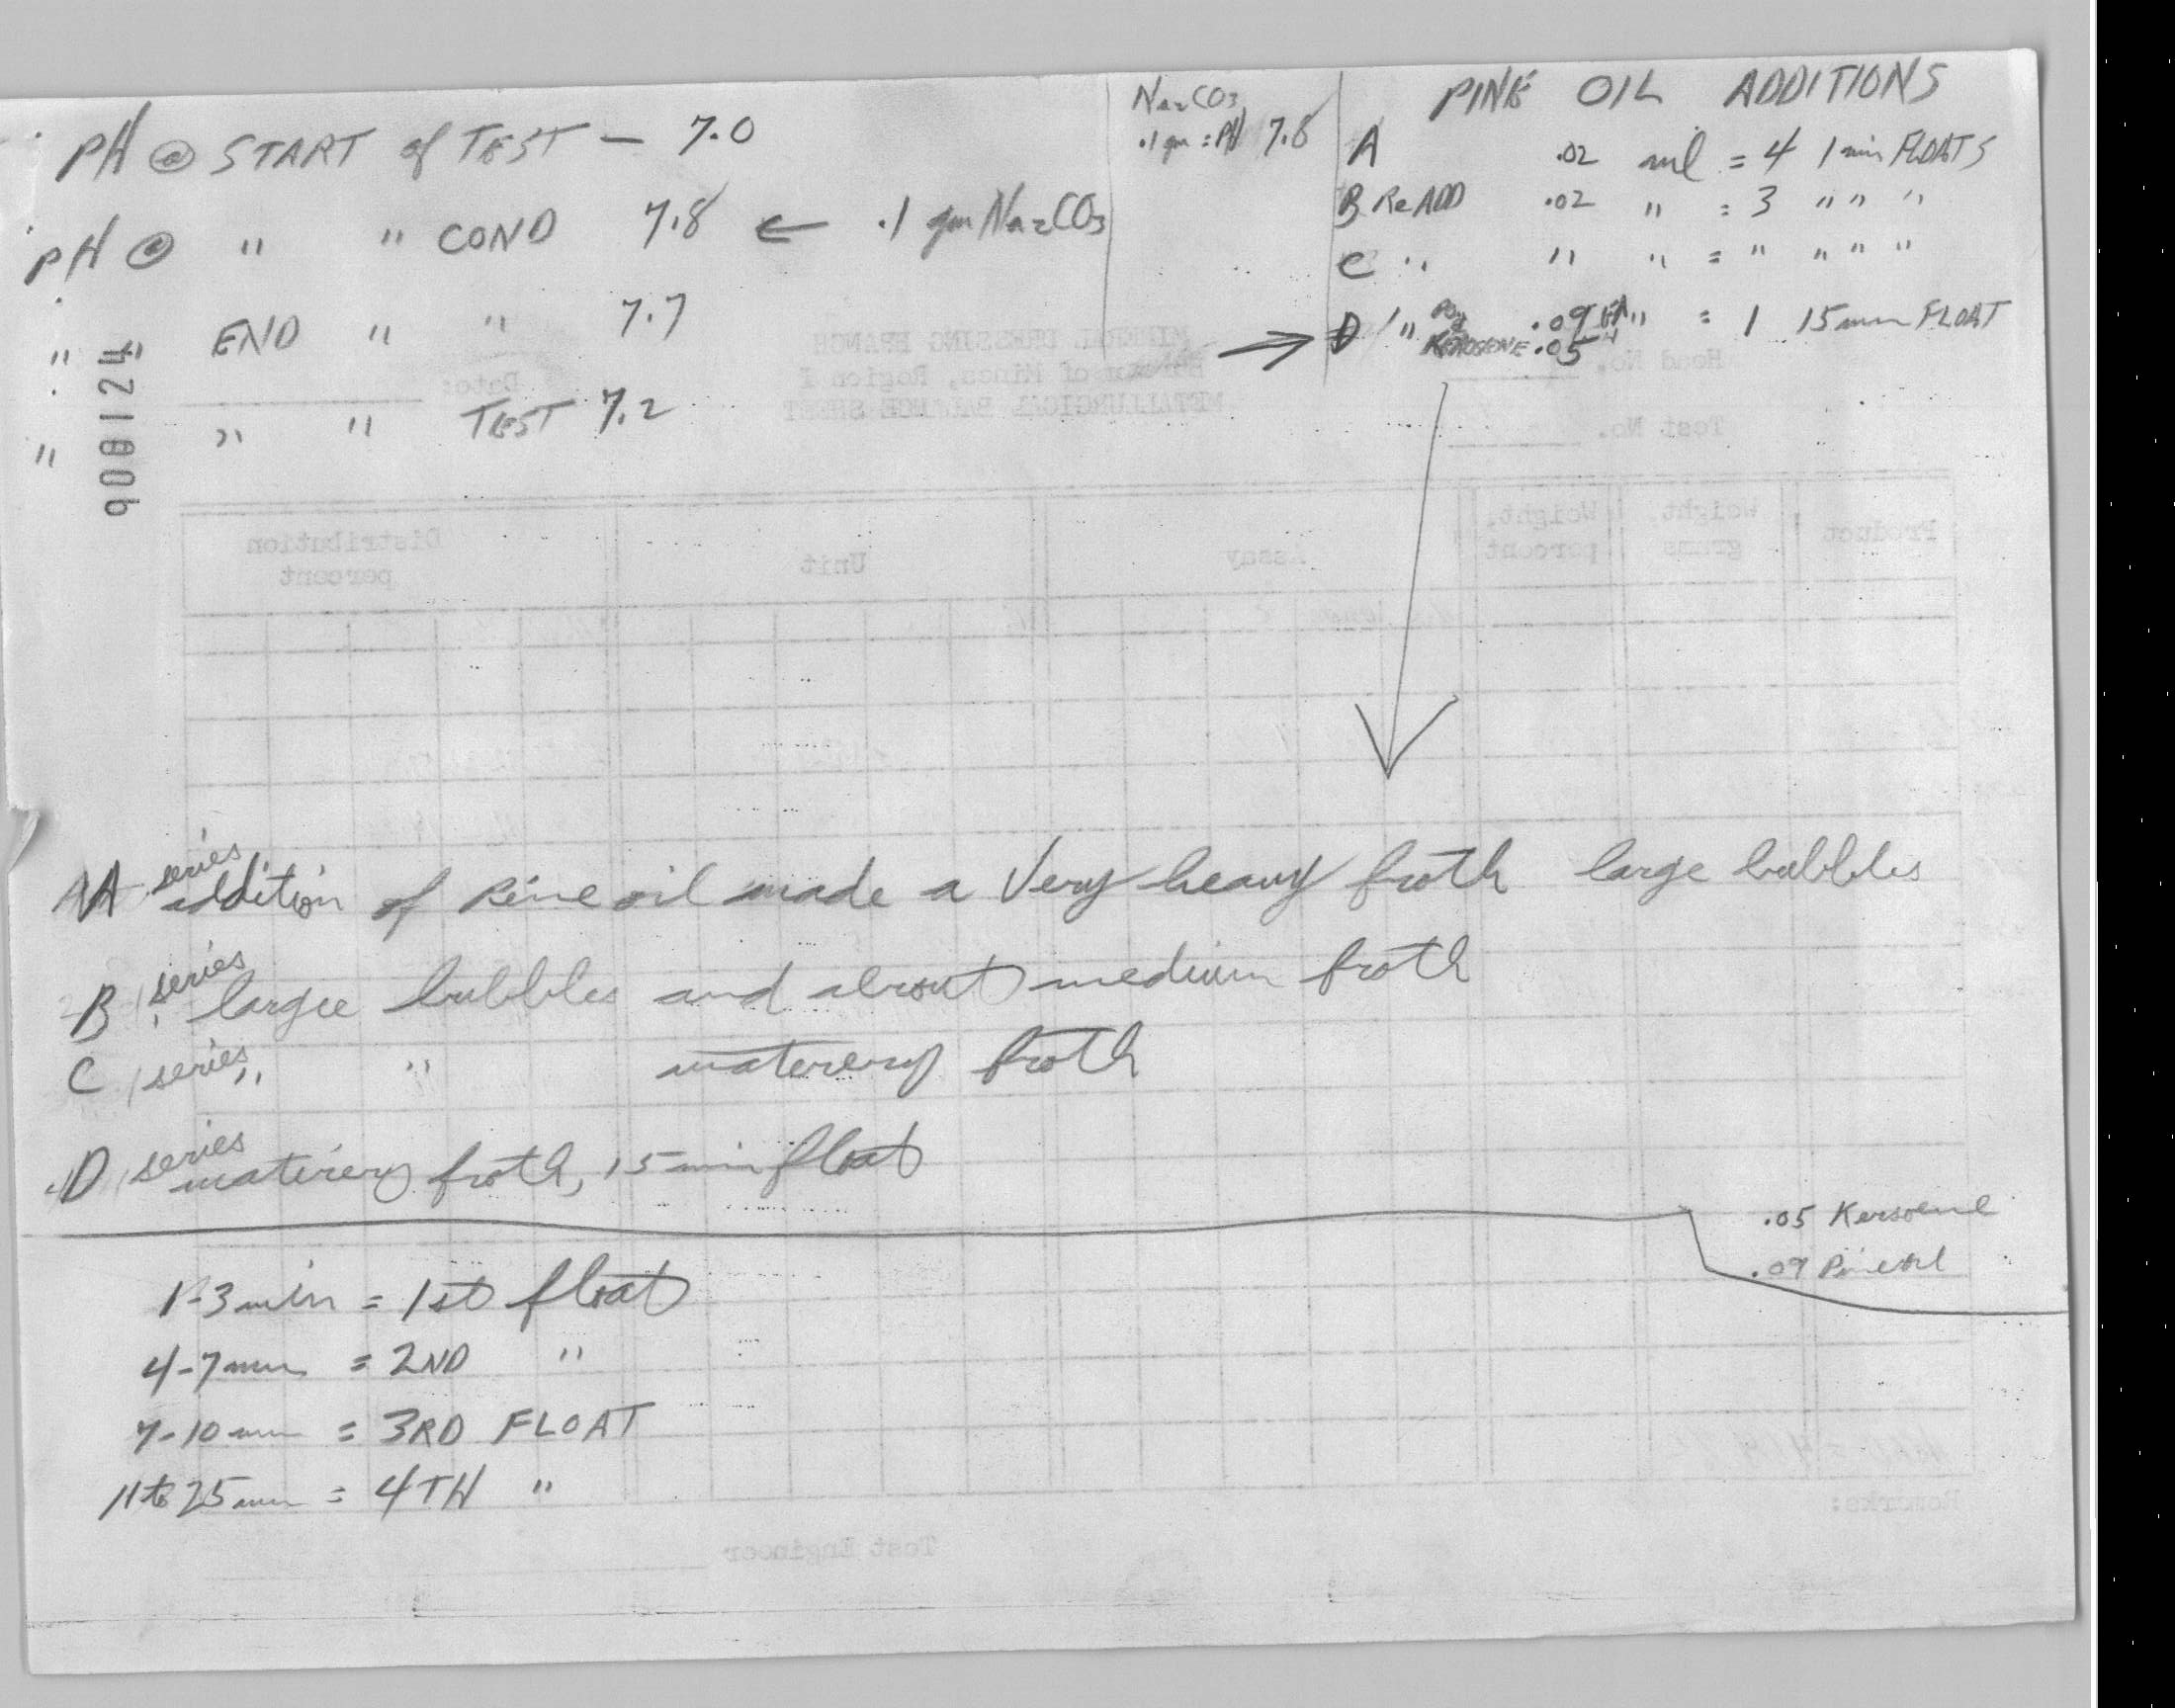 PH @ START of TEST — 7.0
PH @ " " COND 7.8 ← .1 gm Na2CO3
" " END " " 7.7
" " " TEST 7.2
900124
Na2CO3
.1 gm = PH 7.8
PINE OIL ADDITIONS
A .02 ml = 4 1 min FLOATS
B Re ADD .02 " = 3 " " "
C " " " = " " " "
D " .09 " = 1 15 min FLOAT
KEROSENE .05 "
MINERAL DRESSING BRANCH
Bureau of Mines, Region I
METALLURGICAL BALANCE SHEET
Date:
Head No.
Test No.
Product
Weight, grams
Weight, percent
Assay
Unit
Distribution percent
A series addition of Pine oil made a Very heavy froth large bubbles
B series largee bubbles and about medium froth
C series " " waterery froth
D series waterery froth, 15 min float
.05 Kersoene
.09 Pineoil
1-3 min = 1st float
4-7 min = 2ND "
7-10 min = 3RD FLOAT
11 to 25 min = 4TH "
Remarks:
Test Engineer